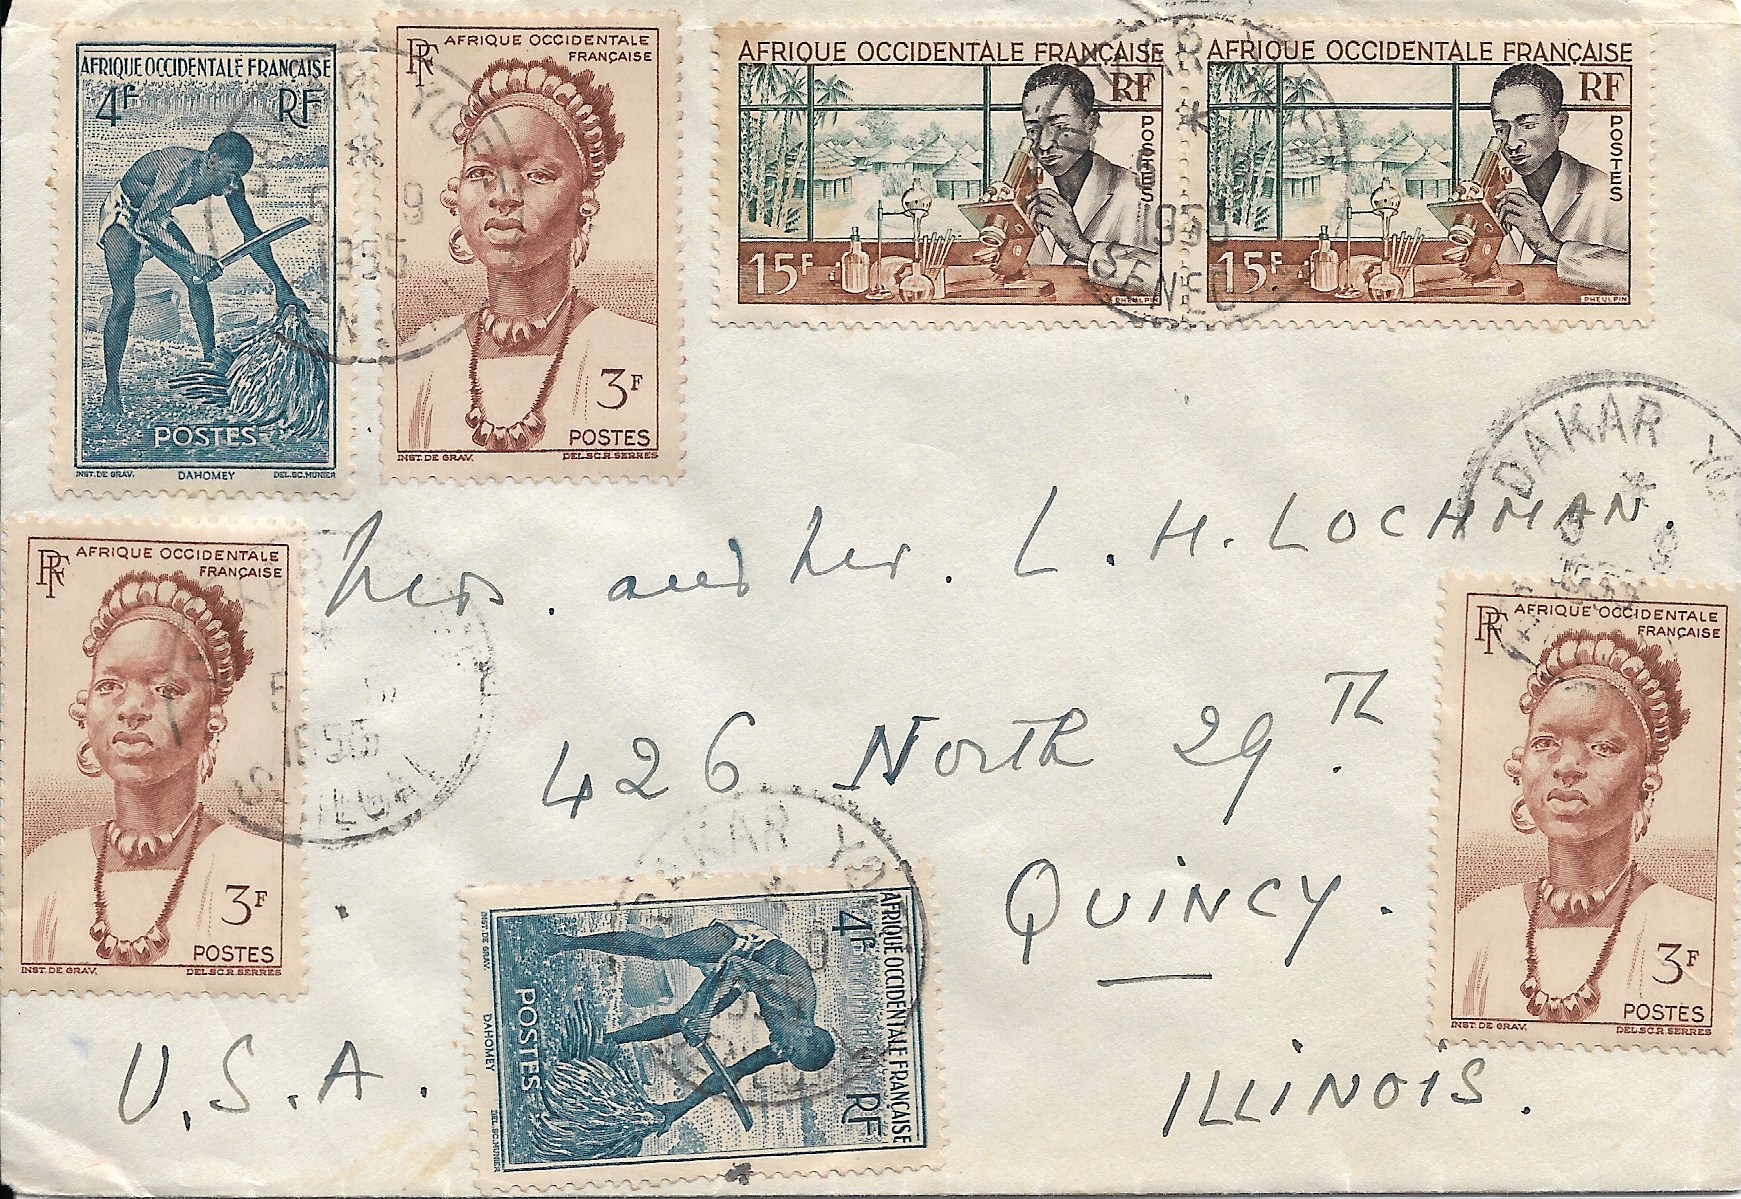 AFRIQUE OCCIDENTALE FRANÇAISE
4F RF
POSTES
INST. DE GRAV. DAHOMEY DEL. SC. MUNIER
RF AFRIQUE OCCIDENTALE
FRANÇAISE
3F
POSTES
INST. DE GRAV. DEL. SC. R. SERRES
AFRIQUE OCCIDENTALE FRANÇAISE
RF
POSTES
15F
PHEULPIN
AFRIQUE OCCIDENTALE FRANÇAISE
RF
POSTES
15F
PHEULPIN
1955
DAKAR
Mrs. and Mr. L. H. LOCHMAN.
426 North 29Th.
QUINCY.
ILLINOIS.
U.S.A.
RF AFRIQUE OCCIDENTALE
FRANÇAISE
3F
POSTES
INST. DE GRAV. DEL. SC. R. SERRES
RF AFRIQUE OCCIDENTALE
FRANÇAISE
3F
POSTES
INST. DE GRAV. DEL. SC. R. SERRES
AFRIQUE OCCIDENTALE FRANÇAISE
4F RF
POSTES
INST. DE GRAV. DAHOMEY DEL. SC. MUNIER
DAKAR